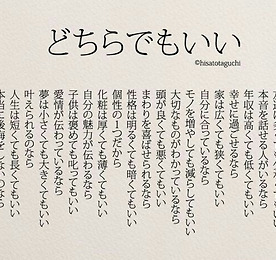 どちらでもいい
©hisatotaguchi
本音を話せる人がいるなら
年収は高くても低くてもいい
幸せに過ごせるなら
家は広くても狭くてもいい
自分に合っているなら
モノを増やしても減らしてもいい
大切なものがわかっているなら
頭が良くても悪くてもいい
まわりを喜ばせられるなら
性格は明るくても暗くてもいい
個性の1つだから
化粧は厚くても薄くてもいい
自分の魅力が伝わるなら
子供は褒めても叱ってもいい
愛情が伝わっているなら
夢は小さくても大きくてもいい
叶えられるのなら
人生は短くても長くてもいい
本当に後悔をしないのなら